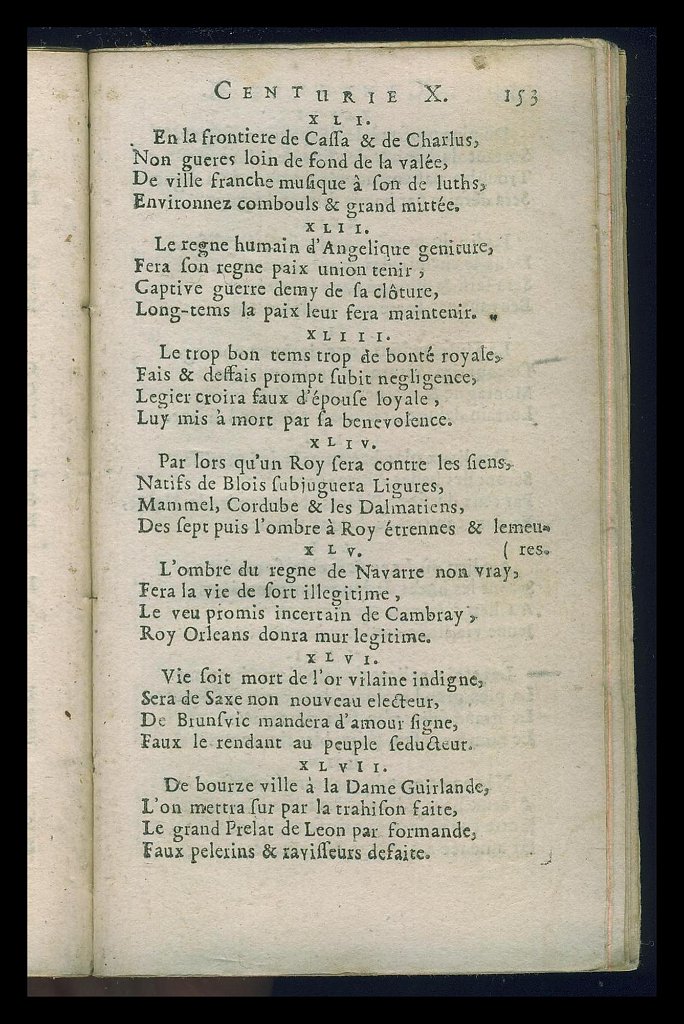 CENTURIE X. 153
XLI.
En la frontiere de Caſſa & de Charlus,
Non gueres loin de fond de la valée,
De ville franche muſique à ſon de luths,
Environnez combouls & grand mittée.
XLII.
Le regne humain d'Angelique geniture,
Fera ſon regne paix union tenir,
Captive guerre demy de ſa clôture,
Long-tems la paix leur fera maintenir.
XLIII.
Le trop bon tems trop de bonté royale,
Fais & deffais prompt ſubit negligence,
Legier croira faux d'épouſe loyale,
Luy mis à mort par ſa benevolence.
XLIV.
Par lors qu'un Roy ſera contre les ſiens,
Natifs de Blois ſubjuguera Ligures,
Mammel, Cordube & les Dalmatiens,
Des ſept puis l'ombre à Roy étrennes & lemeu-
XLV. ( res.
L'ombre du regne de Navarre non vray,
Fera la vie de ſort illegitime,
Le veu promis incertain de Cambray,
Roy Orleans donra mur legitime.
XLVI.
Vie ſoit mort de l'or vilaine indigne,
Sera de Saxe non nouveau electeur,
De Brunſvic mandera d'amour ſigne,
Faux le rendant au peuple ſeducteur.
XLVII.
De bourze ville à la Dame Guirlande,
L'on mettra ſur par la trahiſon faite,
Le grand Prelat de Leon par formande,
Faux pelerins & raviſſeurs defaite.